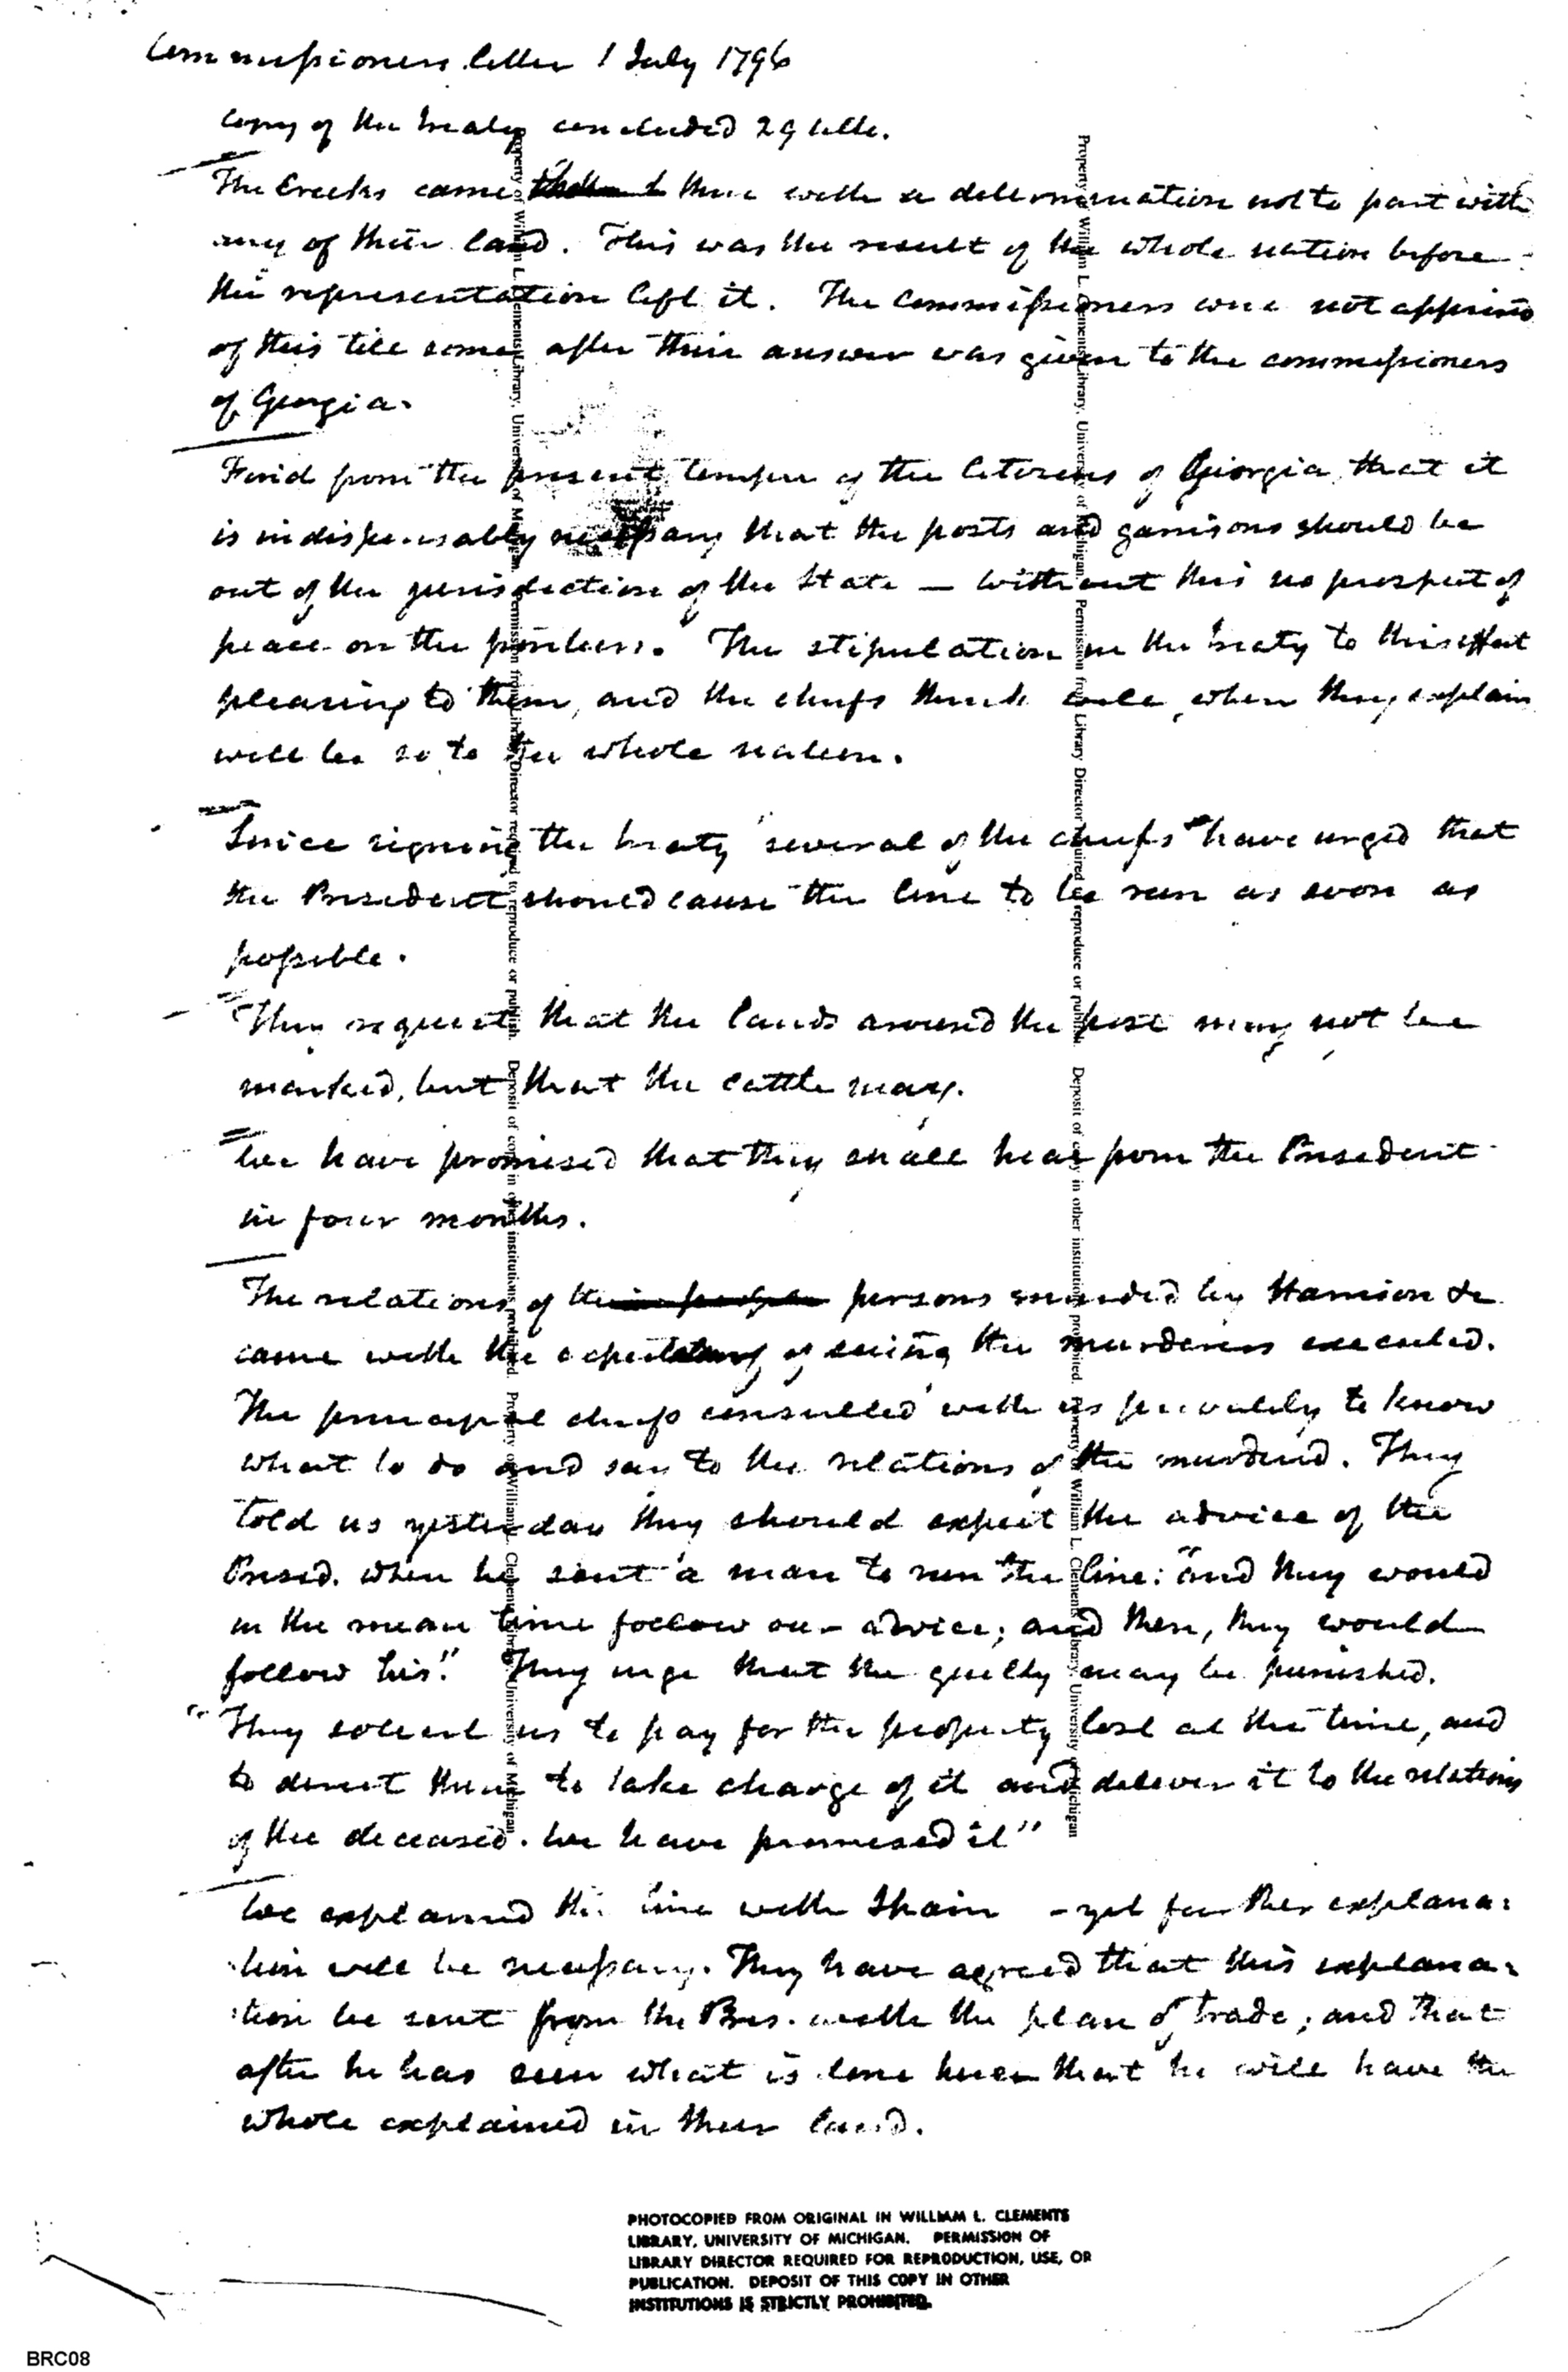 Commissioners letter 1 July 1796
Copy of the treaty concluded 29 ulto.
The Creeks came there with a determination not to part with
any of their land. This was the result of the whole nation before
the representation left it. The commissioners were not apprised
of this till some after their answer was given to the commissioners
of Georgia.
Find from the present temper of the Citizens of Georgia, that it
is indispensably necessary that the posts and garrisons should be
out of the jurisdiction of the State — without this no prospect of
peace on the frontiers. The stipulation in the treaty to this effect
pleasing to them, and the chiefs think will, when they explain
will be so to the whole nation.
Since signing the treaty several of the chiefs have urged that
the President should cause the line to be run as soon as
possible.
They request that the lands around the post may not be
marked, but that the cattle may.
We have promised that they shall hear from the President
in four months.
The relations of the persons murdered by Harrison &c
came with the expectation of seeing the murderers executed.
The principal chiefs consulted with us privately to know
what to do and say to the relations of the murdered. They
told us yesterday they should expect the advice of the
Presid. when he sent a man to run the line: "and they would
in the mean time follow our advice; and then, they would
follow his." They urge that the guilty may be punished.
"They solicit us to pay for the property lost at the time, and
to direct them to take charge of it and deliver it to the relations
of the deceased. We have promised it"
We explained the line with Spain - yet further explana:
:tion will be necessary. They have agreed that this explana:
:tion be sent from the Pres. with the plan of trade; and that
after he has seen what is done here that he will have the
whole explained in their land.
Property of William L. Clements Library, University of Michigan. Permission from Library Director required to reproduce or publish. Deposit of copy in other institutions prohibited. Property of William L. Clements Library, University of Michigan
Property of William L. Clements Library, University of Michigan. Permission from Library Director required to reproduce or publish. Deposit of copy in other institutions prohibited. Property of William L. Clements Library, University of Michigan
PHOTOCOPIED FROM ORIGINAL IN WILLIAM L. CLEMENTS
LIBRARY, UNIVERSITY OF MICHIGAN. PERMISSION OF
LIBRARY DIRECTOR REQUIRED FOR REPRODUCTION, USE, OR
PUBLICATION. DEPOSIT OF THIS COPY IN OTHER
INSTITUTIONS IS STRICTLY PROHIBITED.
BRC08